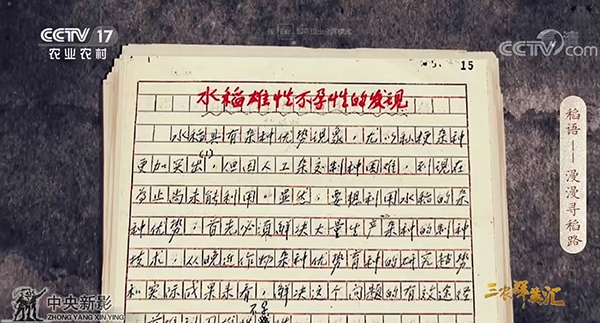 CCTV 17
农业农村
CCTV.com
15
水稻雄性不孕性的发现
水稻具有杂种优势现象，尤以籼粳杂种
更加突出(1)。但因人工杂交制种困难，到现在
为止尚未能利用。显然，要想利用水稻的杂
种优势，首先必须解决大量生产杂种的制种
技术，从晚近作物杂种优势育种的研究趋势
和实际成果来看，解决这个问题的有效途径
稻语——漫漫寻稻路
中央新影
ZHONG YANG XIN YING
三农群英汇